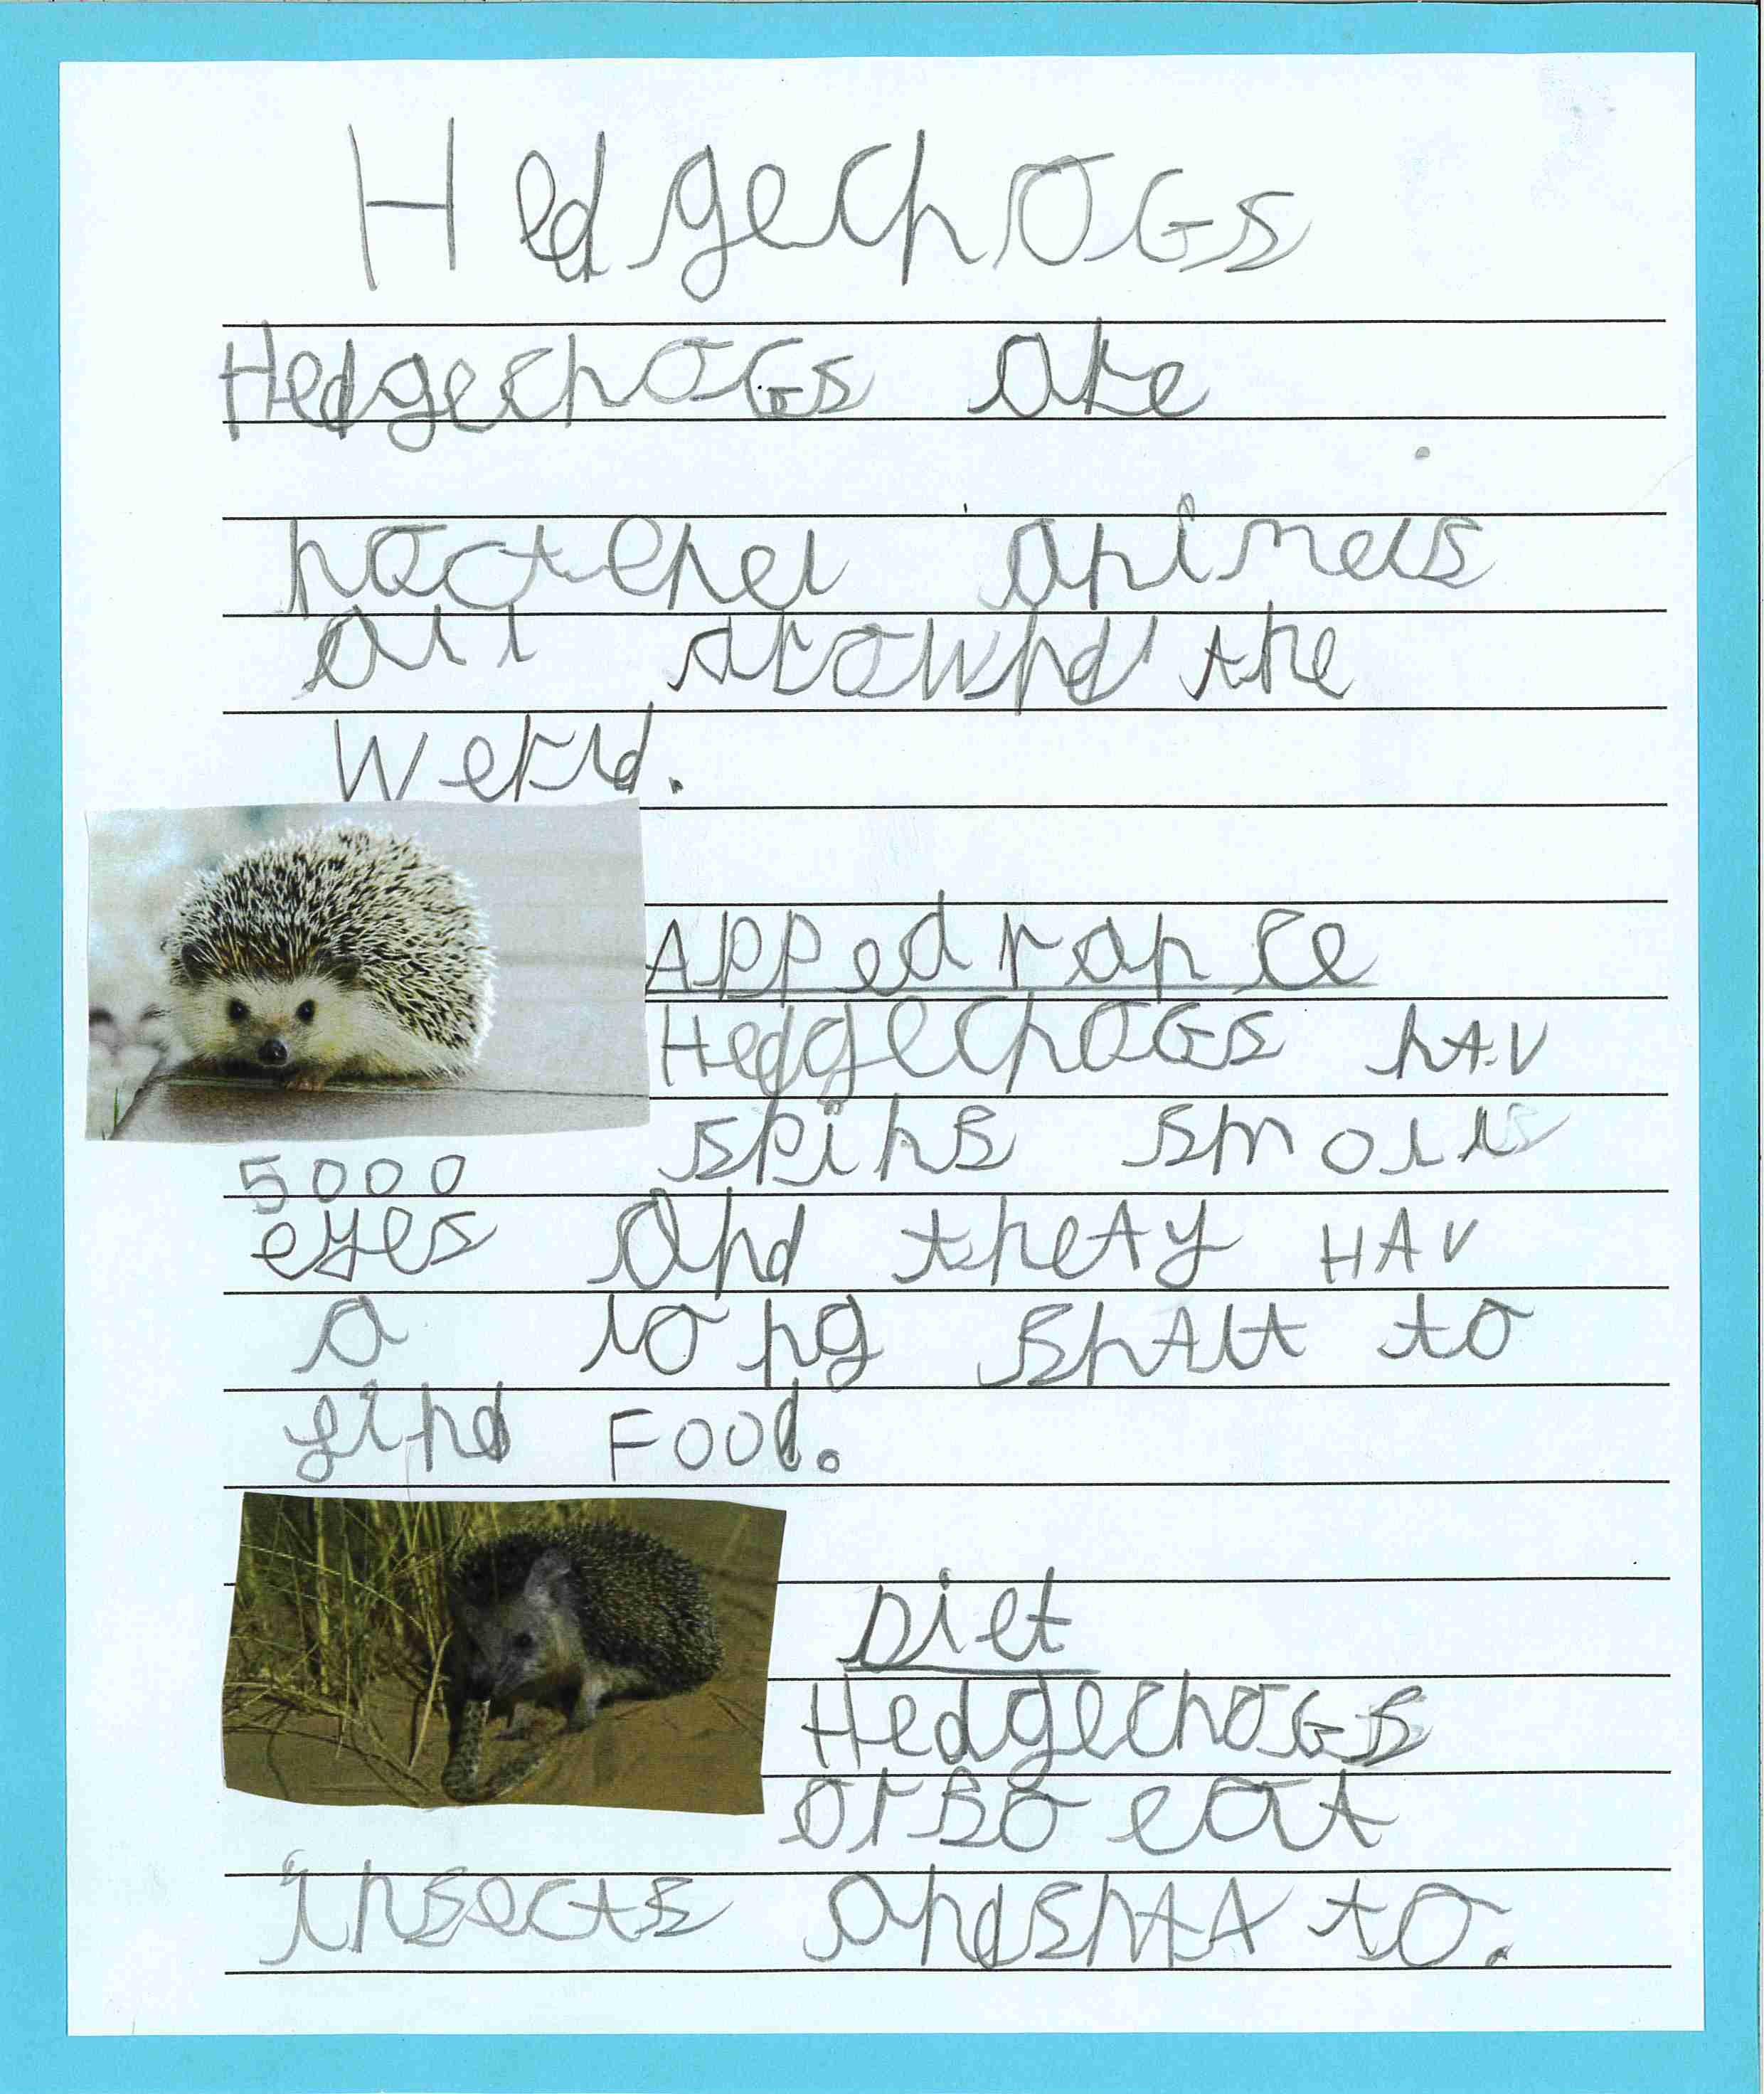 HedgechOGs
HedgechOGs are
noctenel animels
all arownd the
werld.
Appearance
HedgechOGs hAV
5000 spins smoll
eyes and theAy HAV
a long snAut to
find Food.
Diet
HedgechOGs
olso eat
insects and to.